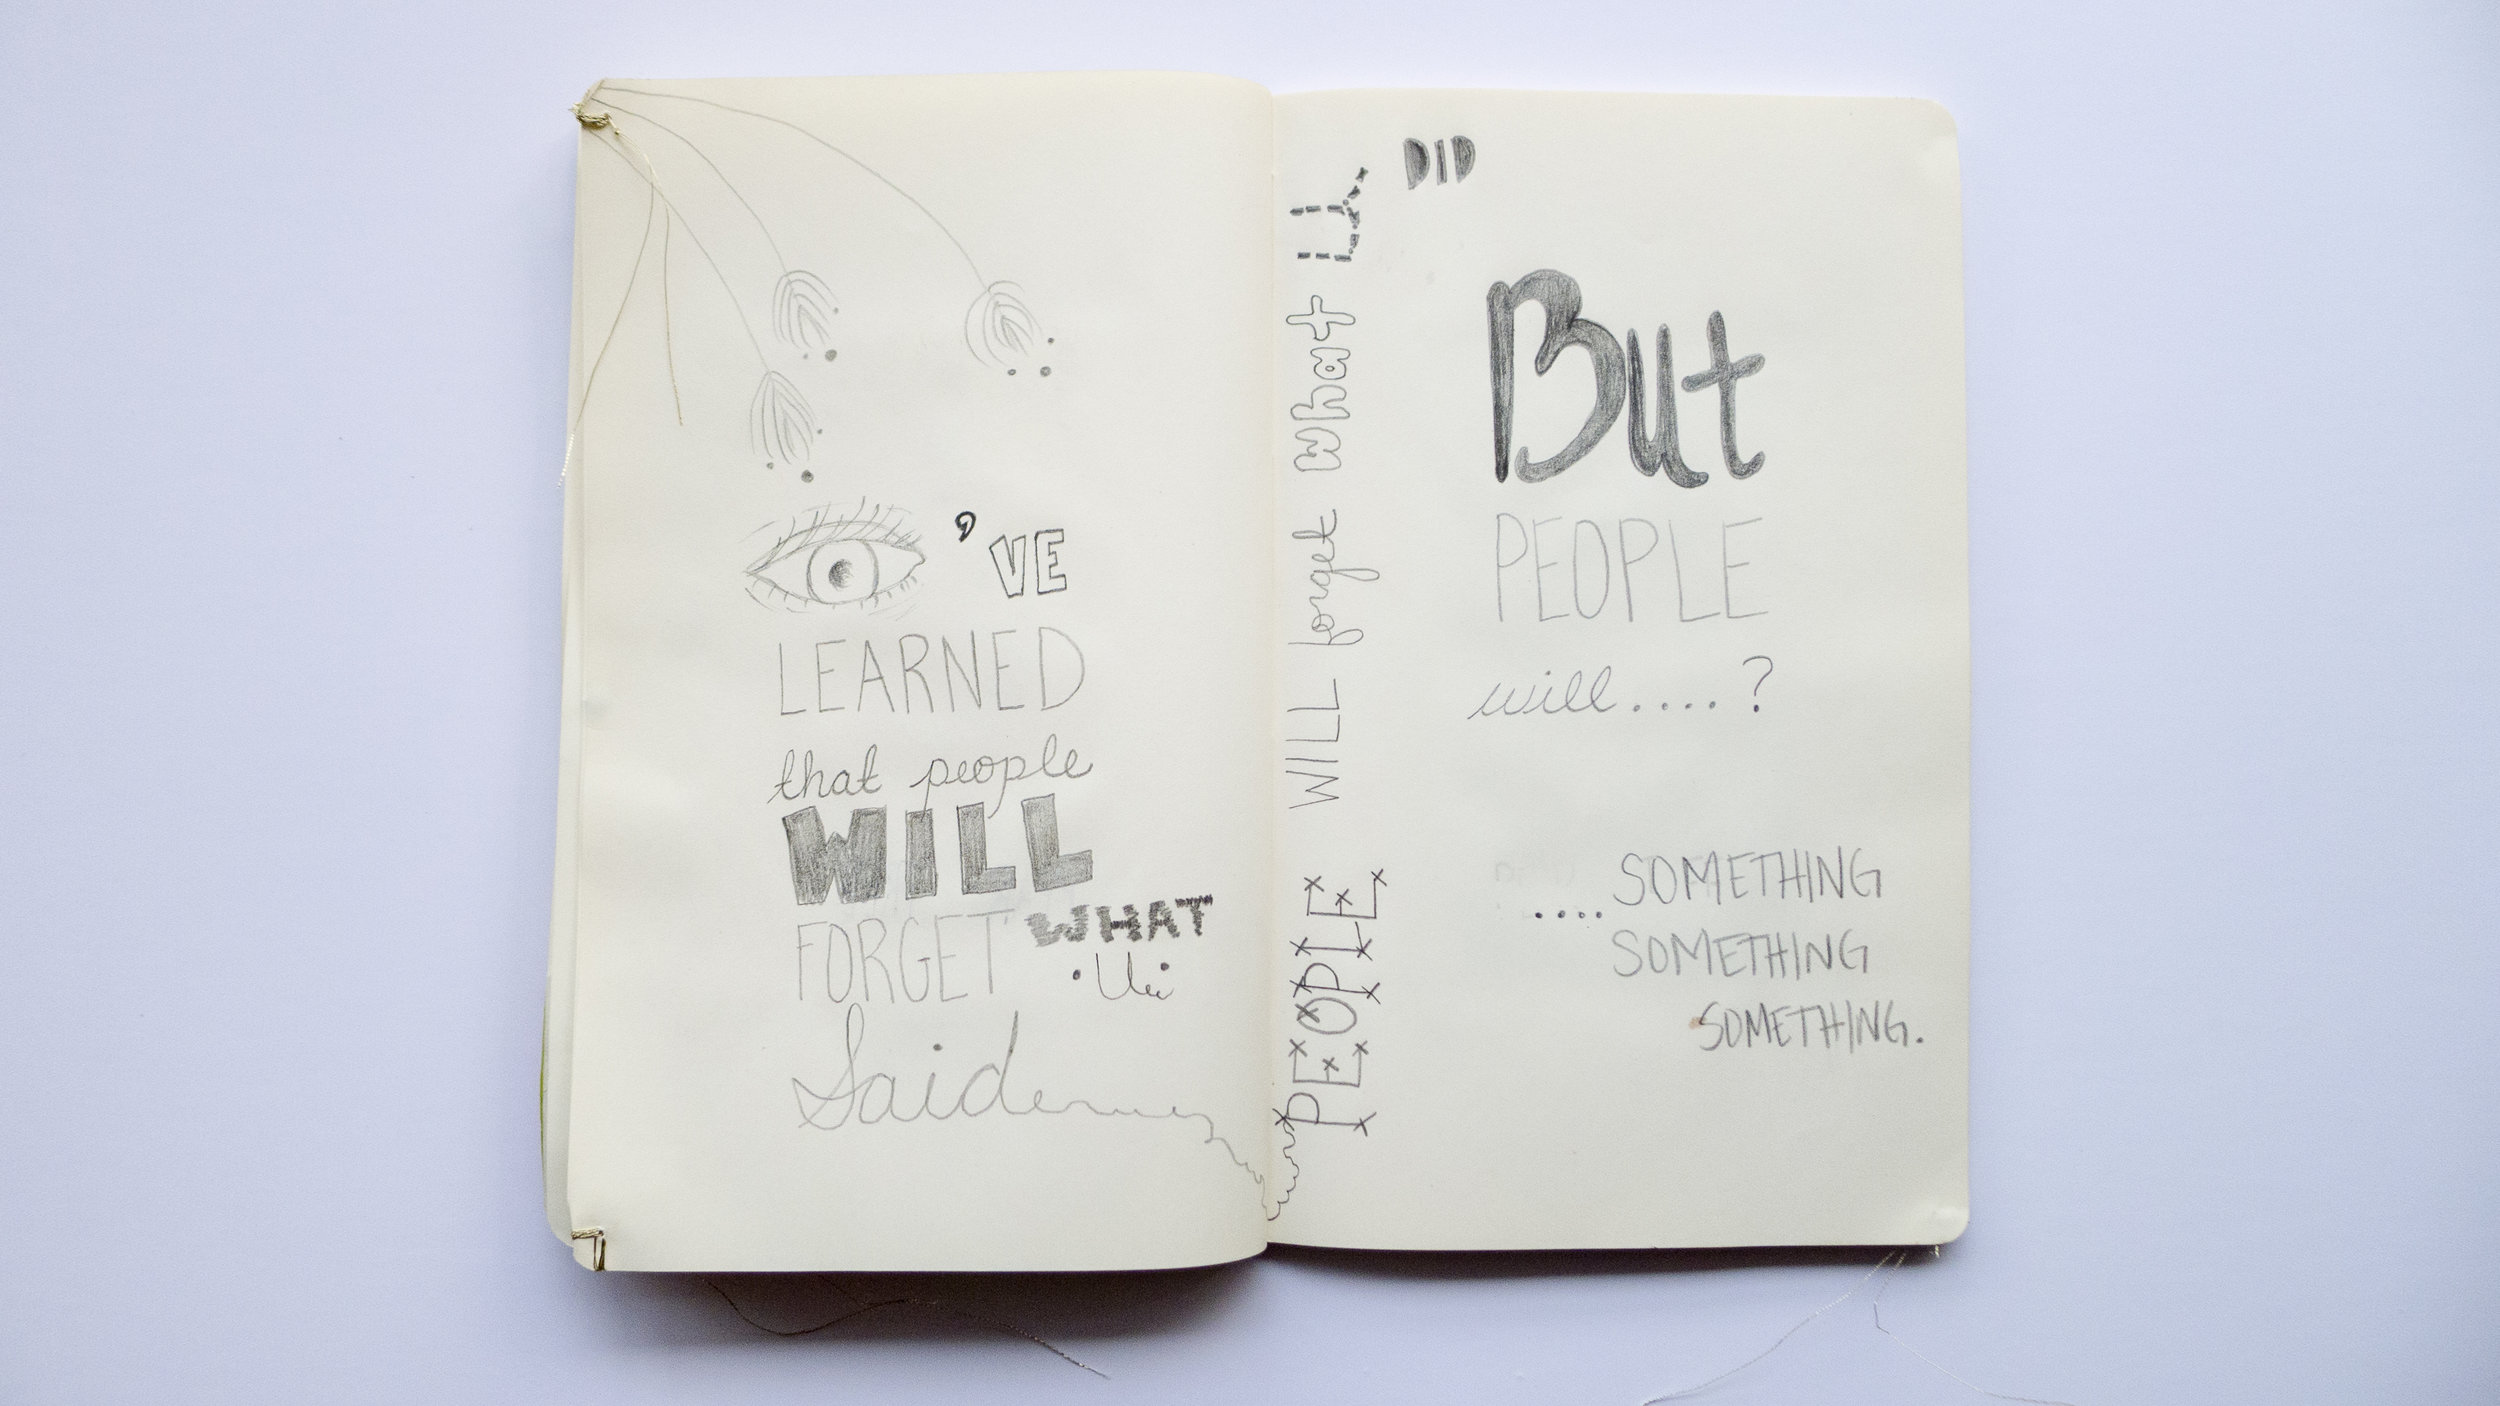 'VE
LEARNED
that people
WILL
FORGET WHAT
Said
PEOPLE WILL forget what U DID
But
PEOPLE
will....?
....SOMETHING
SOMETHING
SOMETHING.